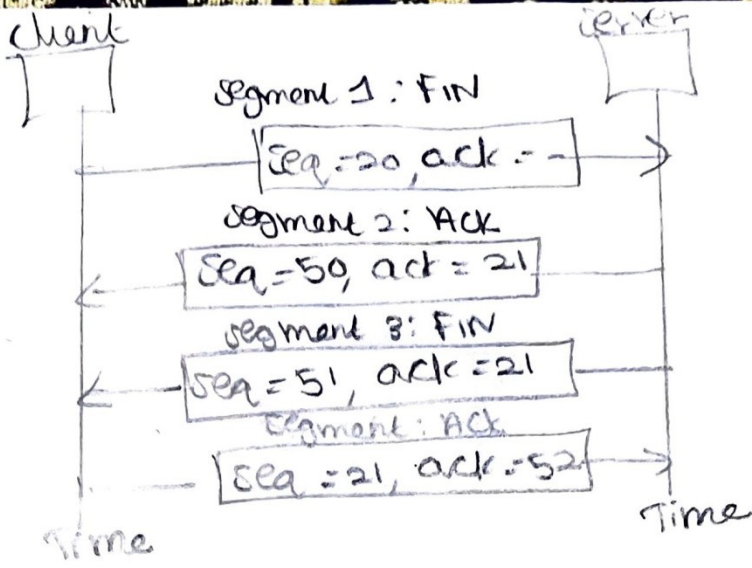 client server
segment 1 : FIN
seq = 20, ack = -
segment 2 : ACK
seq = 50, ack = 21
segment 3 : FIN
seq = 51, ack = 21
segment : ACK
seq = 21, ack = 52
Time Time